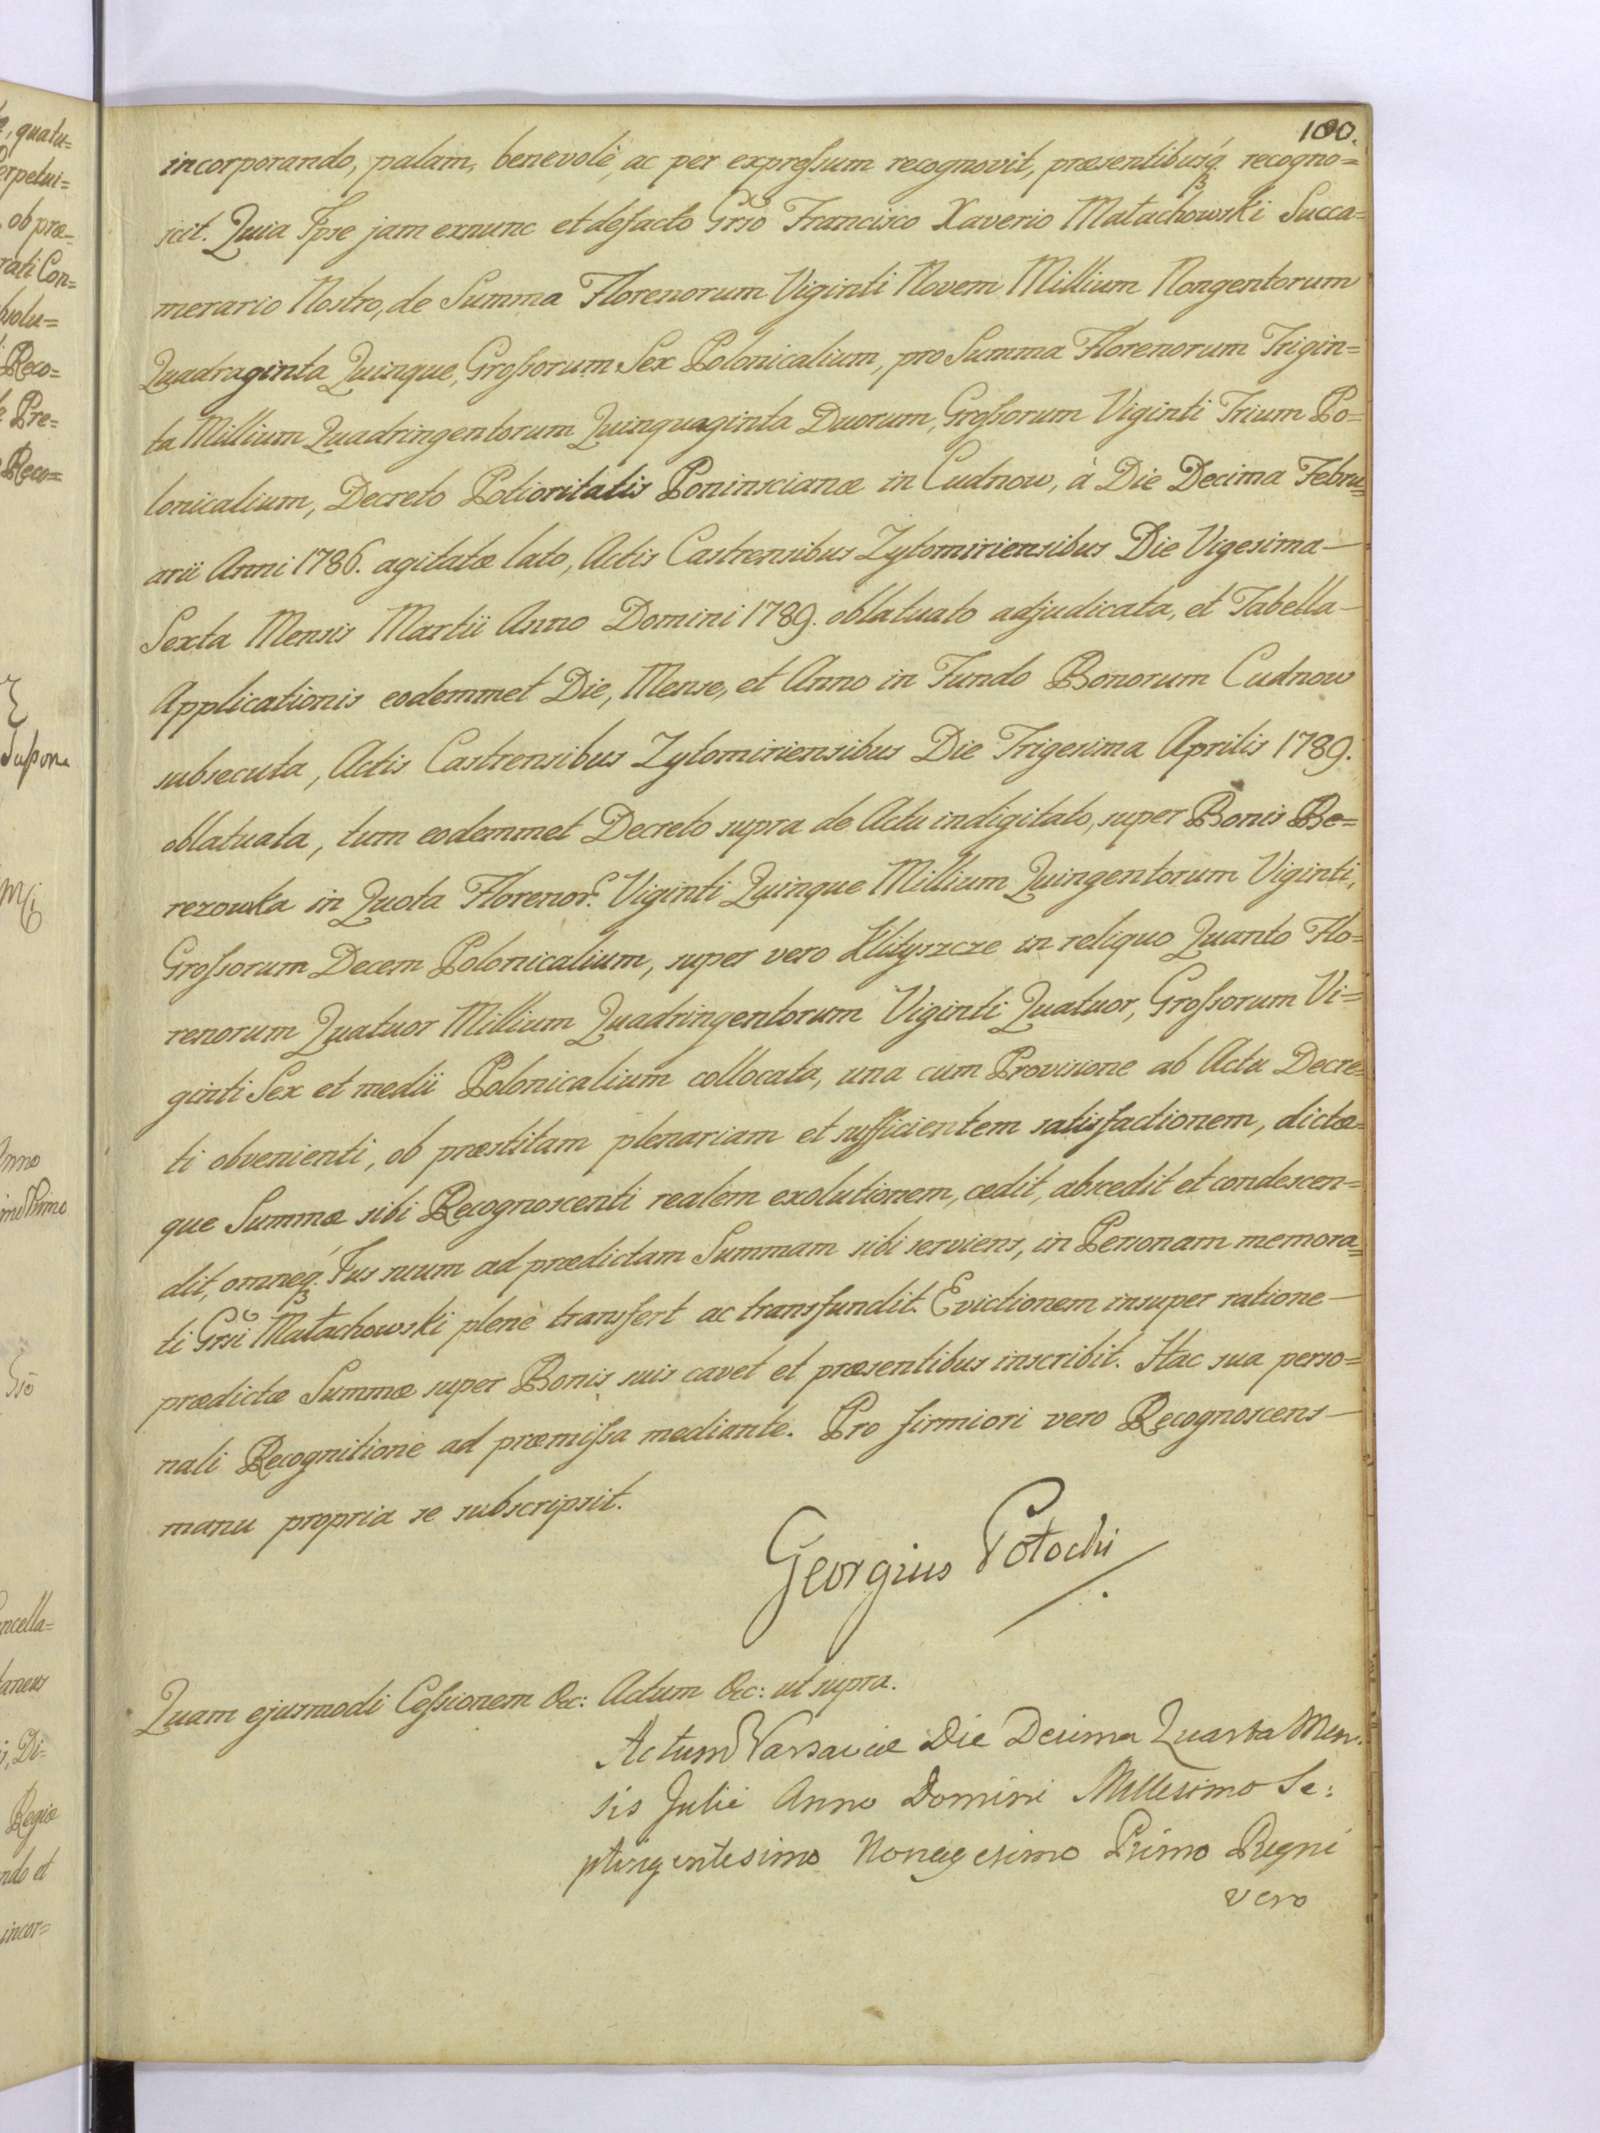 100.
incorporando, palam, benevolè, ac per expreſsum recognovit, præsentibusq́ꝫ recogno=
scit. Quia Ipse jam exnunc et defacto Grso Francisco Xaverio Małachowski Succa=
merario Nostro, de Summa Florenorum Viginti Novem Millium Nongentorum
Quadraginta Quinque, Groſsorum Sex Polonicalium, pro Summa Florenorum Trigin=
ta Millium Quadringentorum Quinquaginta Duorum, Groſsorum Viginti Trium Po=
lonicalium, Decreto Potioritatis Poninscianæ in Cudnow, à Die Decima Febru=
arii Anni 1786. agitatæ lato, Actis Castrensibus Zytomiriensibus Die Vigesima—
Sexta Mensis Martii Anno Domini 1789. oblatuato adjudicata, et Tabella—
Applicationis eodemmet Die, Mense, et Anno in Fundo Bonorum Cudnow
subsecuta, Actis Castrensibus Zytomiriensibus Die Trigesima Aprilis 1789.
oblatuata, tum eodemmet Decreto supra de Actu indigitato, super Bonis Be=
rezowka in Quota Florenor. Viginti Quinque Millium Quingentorum Viginti,
Groſsorum Decem Polonicalium, super vero Klityszcze in reliquo Quanto Flo=
renorum Quatuor Millium Quadringentorum Viginti Quatuor, Groſsorum Vi=
ginti Sex et medii Polonicalium collocata, una cum Provisione ab Actu Decre=
ti obvenienti, ob præstitam plenariam et sufficientem satisfactionem, dictæ=
que Summæ sibi Recognoscenti realem exolutionem, cedit, abscedit et condescen=
dit, omneq́ꝫ Jus suum ad prædictam Summam sibi serviens, in Personam memora=
ti Grsi Małachowski plenè transfert ac transfundit. Evictionem insuper ratione—
prædictæ Summæ super Bonis suis cavet et præsentibus inscribit. Hac sua perso=
nali Recognitione ad præmiſsa mediante. Pro firmiori vero Recognoscens—
manu propria se subscripsit.
Georgius Potocki
Quam ejusmodi Ceſsionem &c: Actum &c: ut supra.
Actum Varsaviæ Die Decima Quarta Men:
sis Julii Anno Domini Millesimo Se:
ptingentesimo Nonagesimo Primo Regni
vero
quatu=
ob præ=
rati Con=
Reco=
Pre=
Reco=
ncella=
Di=
Regiæ
incor=